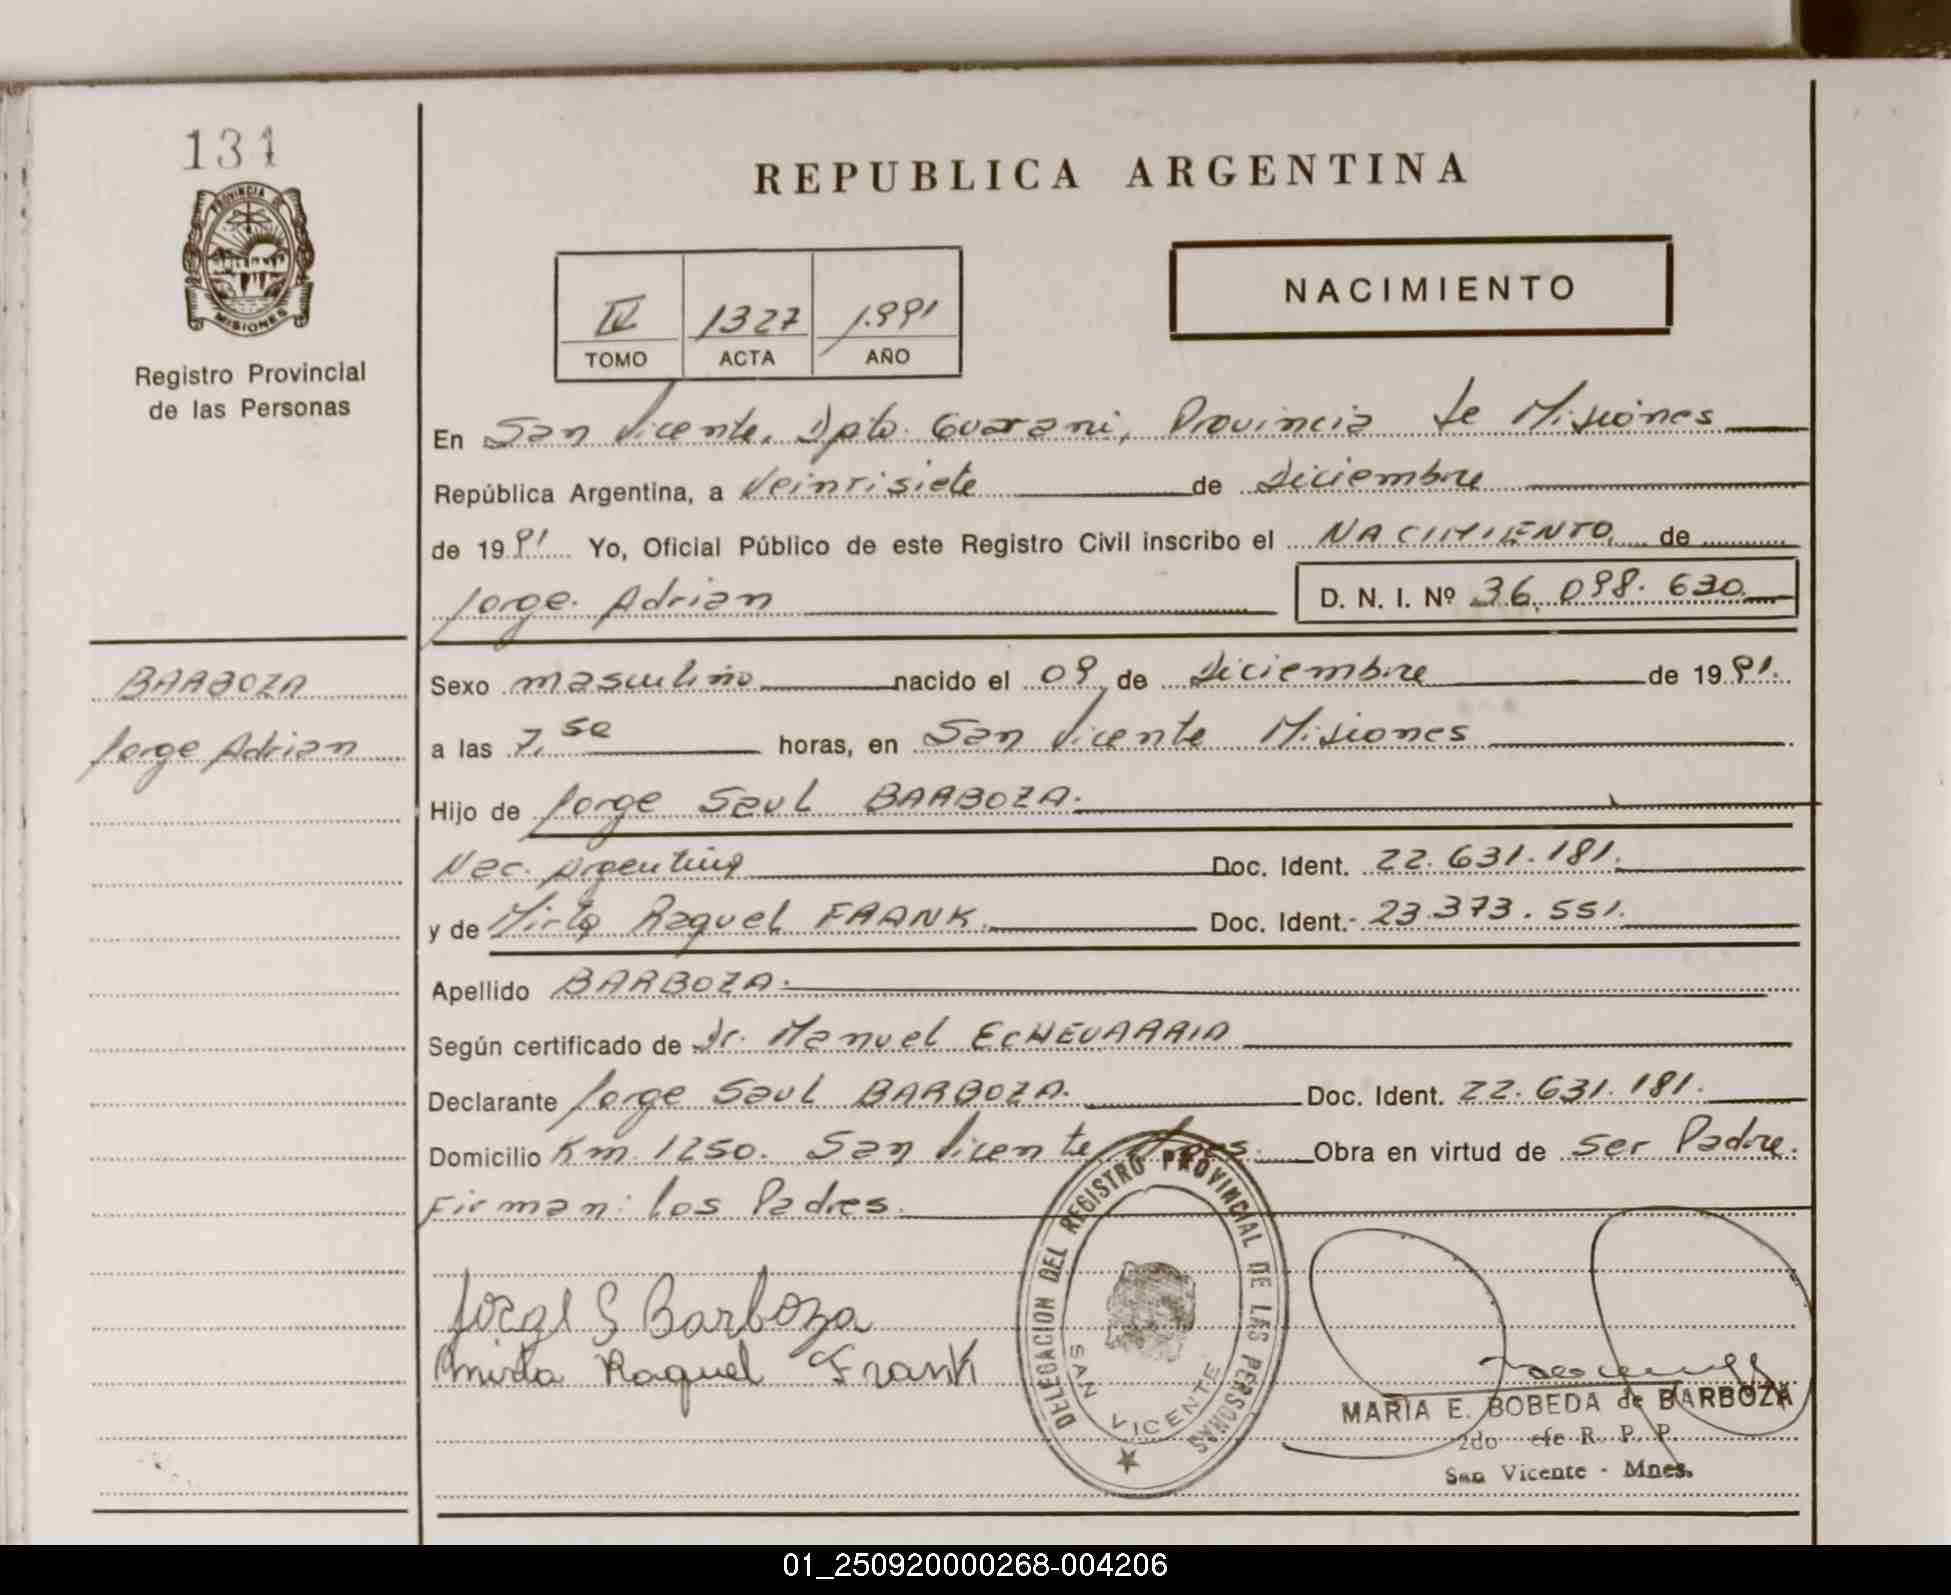 131
PROVINCIA DE
MISIONES
Registro Provincial
de las Personas
REPUBLICA ARGENTINA
NACIMIENTO
IV 1327 1.991
TOMO ACTA AÑO
En San Vicente, Dpto. Guarani, Provincia de Misiones
República Argentina, a Veintisiete de Diciembre
de 1991 Yo, Oficial Público de este Registro Civil inscribo el NACIMIENTO de
Jorge Adrian D. N. I. Nº 36.098.630
BARBOZA
Jorge Adrian
Sexo masculino nacido el 09 de Diciembre de 1991.
a las 7,50 horas, en San Vicente Misiones
Hijo de Jorge Saul BARBOZA.
Nac. Argentina Doc. Ident. 22.631.181.
y de Mirta Raquel FRANK. Doc. Ident.- 23.373.551.
Apellido BARBOZA.
Según certificado de Dr. Manuel ECHEVARRIA
Declarante Jorge Saul BARBOZA. Doc. Ident. 22.631.181.
Domicilio Km. 1250. San Vicente Mnes. Obra en virtud de Ser Padre.
Firman: los Padres.
Jorge S Barboza
Mirta Raquel Frank
DELEGACION DEL REGISTRO PROVINCIAL DE LAS PERSONAS
SAN VICENTE
MARIA E. BOBEDA de BARBOZA
2do efe R. P. P.
San Vicente - Mnes.
01_250920000268-004206